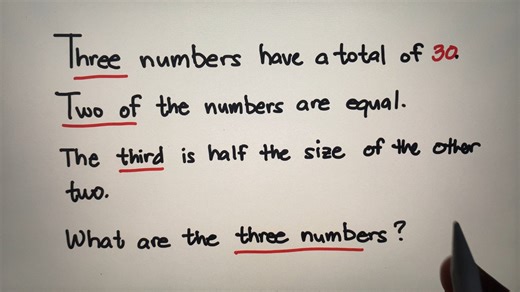 Three numbers have a total of 30.
Two of the numbers are equal.
The third is half the size of the other
two.
What are the three numbers?